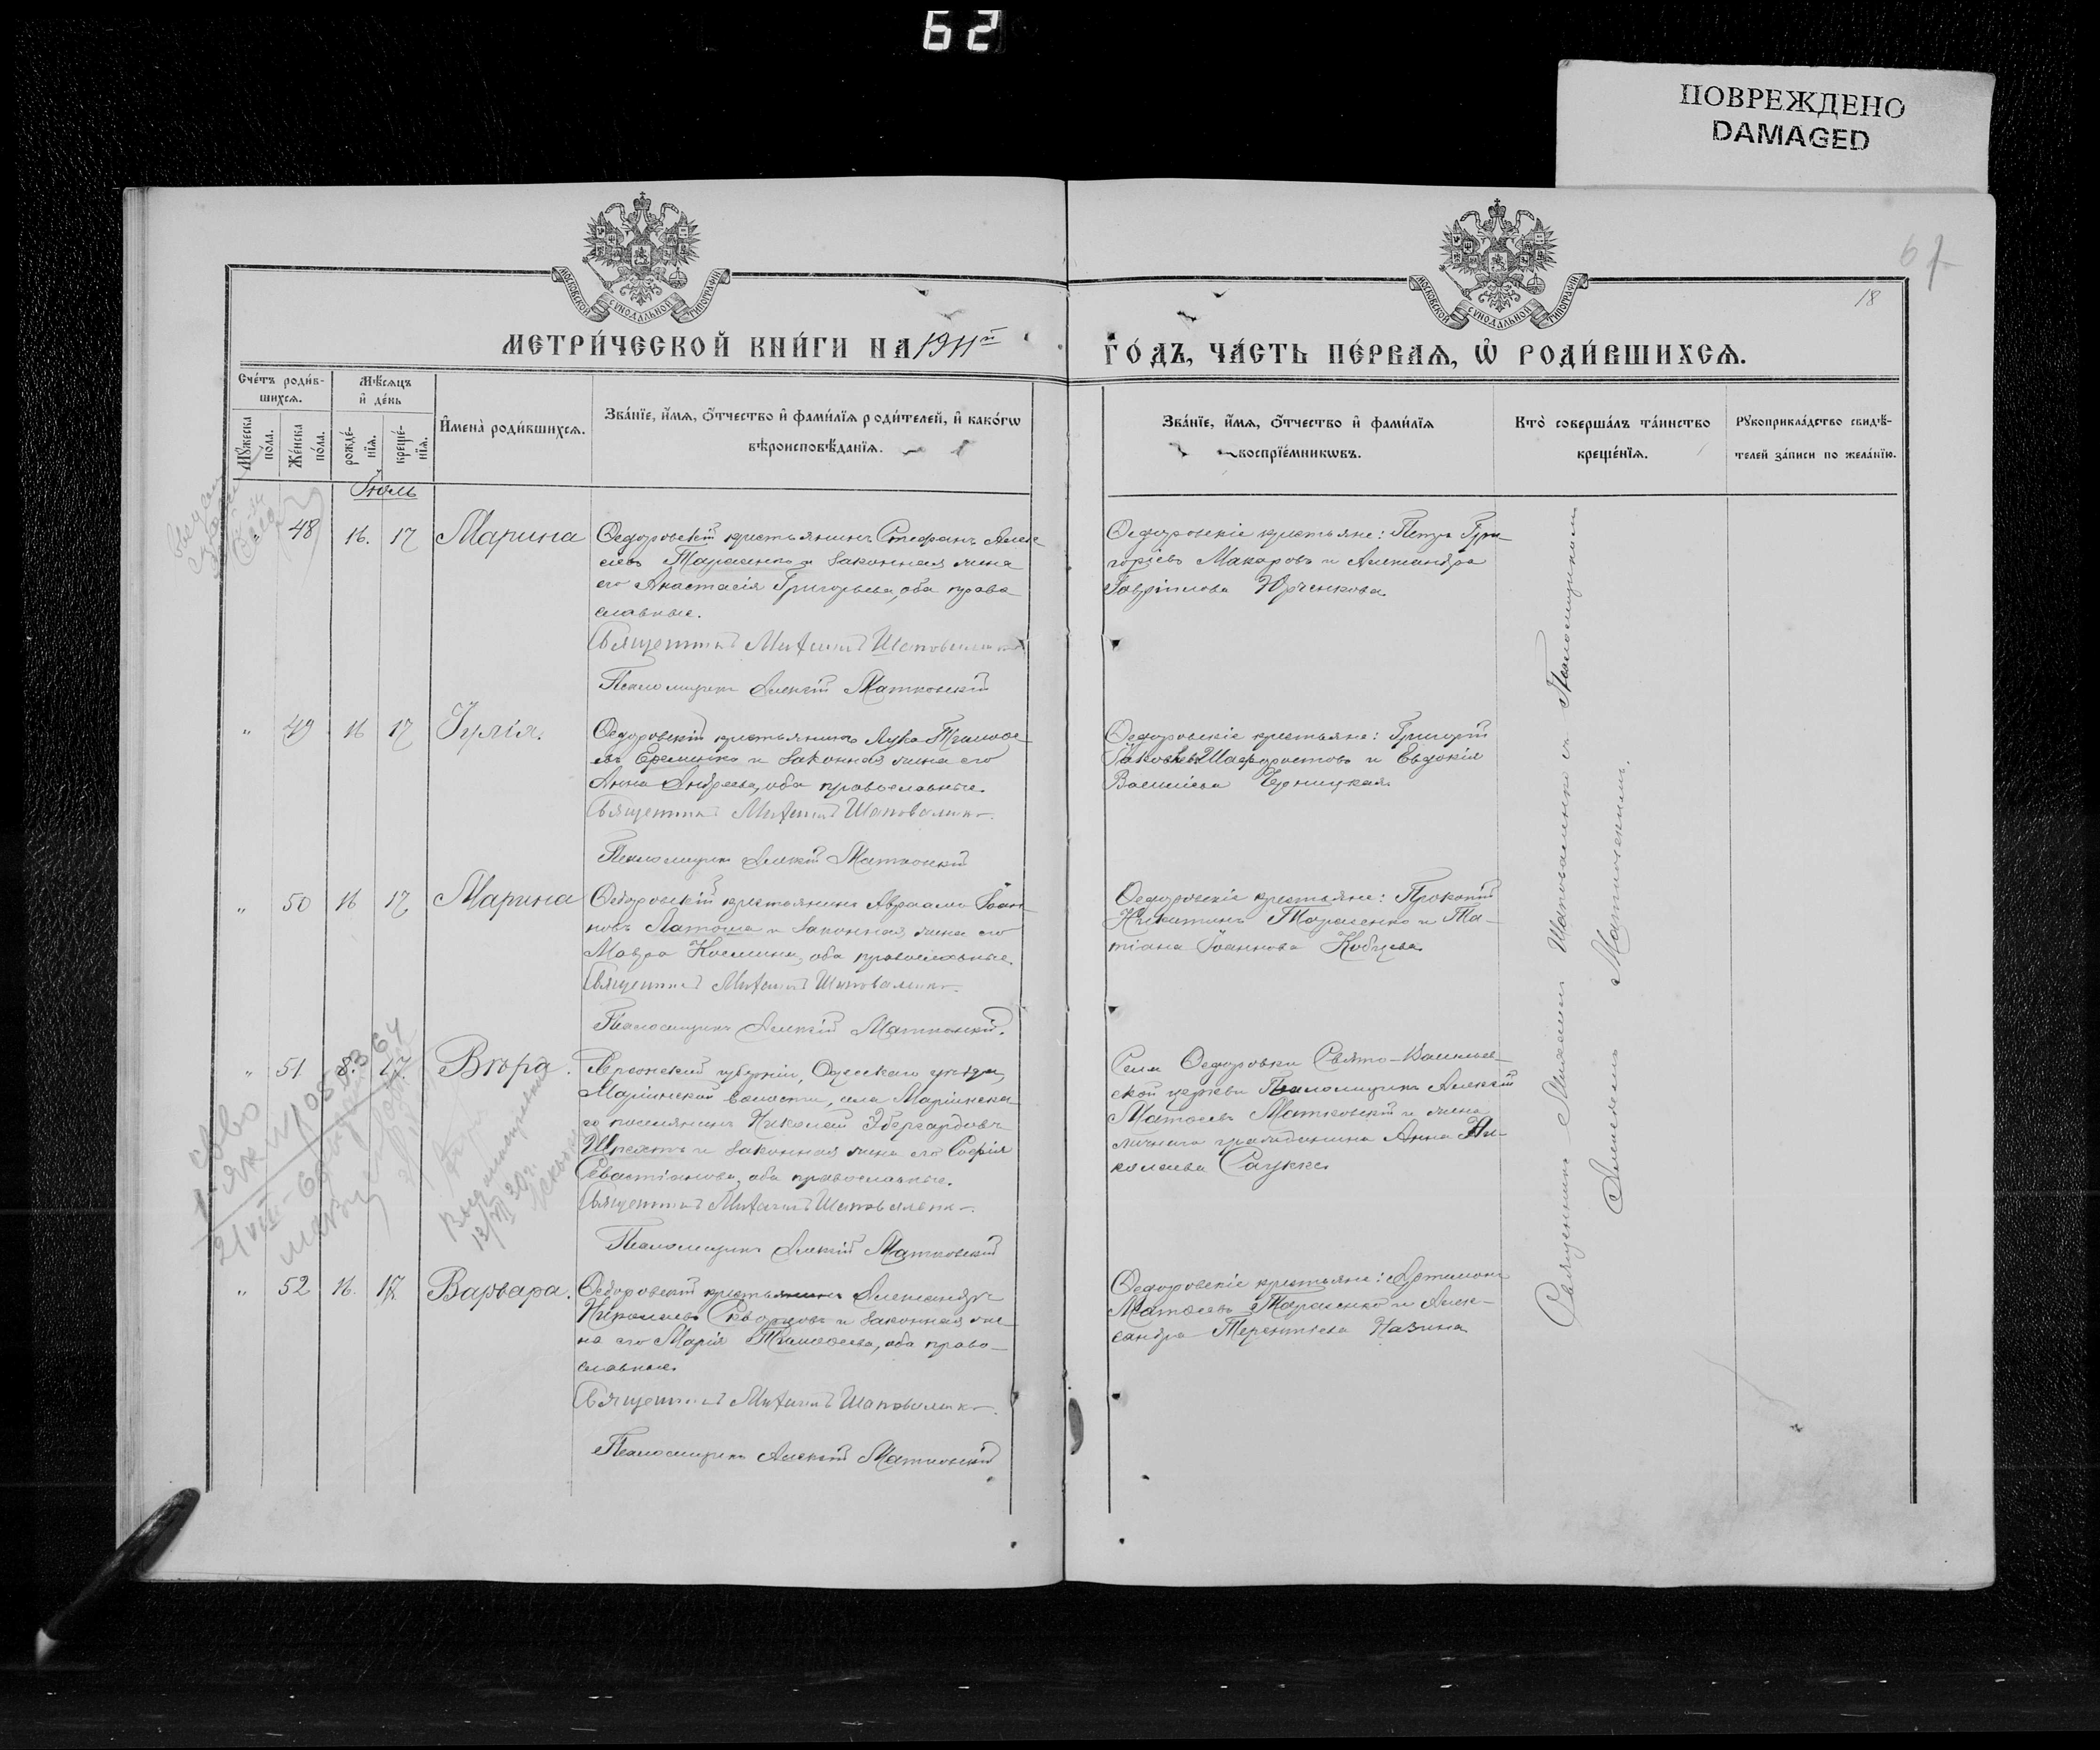 62
ПОВРЕЖДЕНО
DAMAGED
67
18
МОСКОВСКОЙ СѴНОДАЛЬНОЙ ТИПОГРАФІИ
МОСКОВСКОЙ СѴНОДАЛЬНОЙ ТИПОГРАФІИ
МЕТРИ́ЧЕСКОЙ КНИ́ГИ НА 1911й
ГО́ДЪ, ЧА́СТЬ ПЕ́РВАѦ, Ѽ РОДИ́ВШИХСѦ.
Сче́тъ роди́в-
шихсѧ.
Мѣ́сѧцъ
и҆ де́нь
Мꙋ́жеска
по́ла.
Же́нска
по́ла.
рожде́-
нїѧ.
креще́-
нїѧ.
И҆мена̀ роди́вшихсѧ.
Зва́нїе, и҆́мѧ, ѻ҆́тчество и҆ фами́лїѧ роди́телей, и҆ како́гѡ
вѣроисповѣ́данїѧ.
Зва́нїе, и҆́мѧ, ѻ҆́тчество и҆ фами́лїѧ
воспрїе́мникѡвъ.
Кто̀ соверша́лъ та́инство
креще́нїѧ.
Рꙋкоприкла́дство свидѣ́-
телей за́писи по жела́нїю.
Іюль
„ 48 16. 17 Марина
Ѳедоровскій крестьянинъ Стефанъ Алек-
сѣевъ Тарасенко и законная жена
его Анастасія Григорьева, оба право-
славные.
Священникъ Михаилъ Шаповаленко
Псаломщикъ Алексій Матковскій
Ѳедоровскіе крестьяне: Петръ Гри-
горіевъ Макаровъ и Александра
Гавріилова Юрченкова
„ 49 16 17 Іулія.
Ѳедоровскій крестьянинъ Лука Тимоѳе-
евъ Еременко и законная жена его
Анна Андреева, оба православные.
Священникъ Михаилъ Шаповаленко.
Псаломщикъ Алексій Матковскій
Ѳедоровскіе крестьяне: Григорій
Іаковлевъ и Евдокія
Василіева Черницкая
„ 50 16 17 Марина
Ѳедоровскій крестьянинъ Авраамъ Іоан-
новъ Латоша и законная жена его
Мавра Космина, оба православные.
Священникъ Михаилъ Шаповаленко.
Псаломщикъ Алексій Матковскій.
Ѳедоровскіе крестьяне: Прокопій
Никитинъ Тарасенко и Та-
тіана Іоаннова Кобцева
„ 51 8. 17. Вѣра.
Херсонской губерніи, Одесскаго уѣзда,
Маріинской волости, села Маріинска-
го поселянинъ Николай Эбергардовъ
и законная жена его Софія
Севастіанова, оба православные.
Священникъ Михаилъ Шаповаленко.
Псаломщикъ Алексій Матковскій
Села Ѳедоровки Свято-Васильев-
ской церкви Псаломщикъ Алексій
Матѳеевъ Матковскій и жена
личнаго гражданина Анна Ни-
колаева Саукке
„ 52 16. 17 Варвара.
Ѳедоровскій крестьянинъ Александръ
Николаевъ Скворцовъ и законная же-
на его Марія Тимоѳеева, оба право-
славные.
Священникъ Михаилъ Шаповаленко.
Псаломщикъ Алексій Матковскій
Ѳедоровскіе крестьяне: Артимонъ
Матѳеевъ Тарасенко и Алек-
сандра Терентьева Назина
Священникъ Михаилъ Шаповаленко съ Псаломщикомъ
Алексѣемъ Матковскимъ.